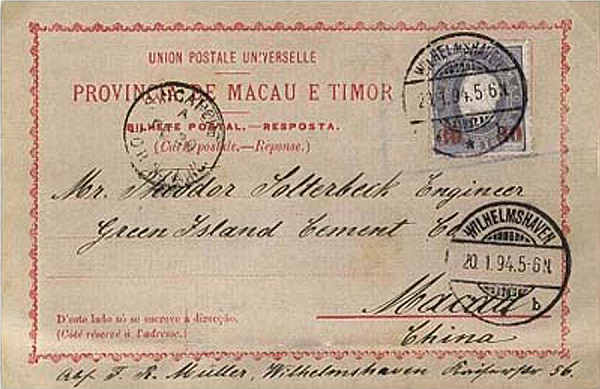 UNION POSTALE UNIVERSELLE
PROVINCIA DE MACAU E TIMOR
BILHETE POSTAL.—RESPOSTA.
(Carte postale.—Réponse.)
WILHELMSHAVEN
20.1.94.5-6N.
SINGAPORE
A
Mr. Theodor Solterbeck Engineer
Green Island Cement Co
WILHELMSHAVEN
20.1.94.5-6N.
b
Macau
China
D'este lado só se escreve a direcção.
(Côté réservé à l'adresse.)
Abs. F. R. Müller, Wilhelmshaven 56.